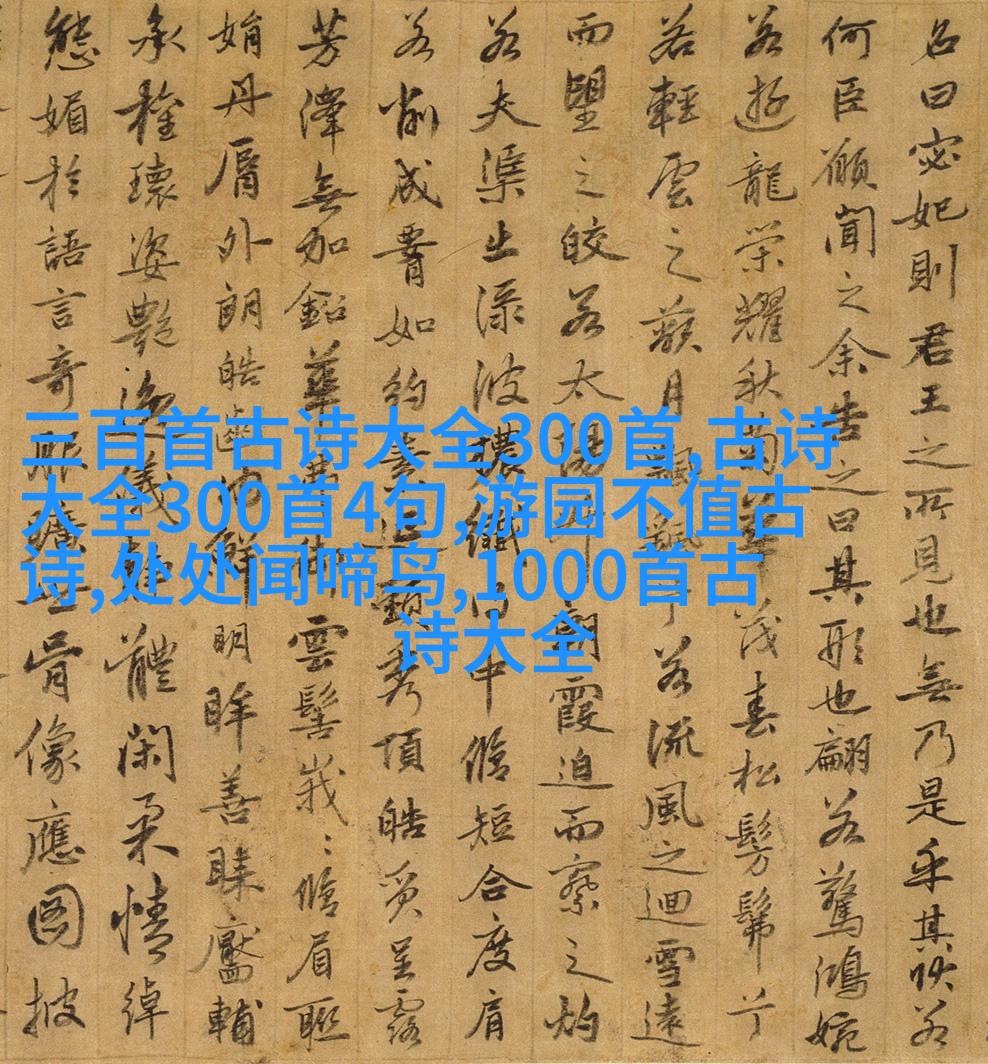 三百首古诗大全300首,古诗
大全300首4句,游园不值古
诗,处处闻啼鸟,1000首古
诗大全
名曰宓妃則君王之所見也無乃是乎其狀若
何臣願聞之余告之曰其形也翩若驚鴻婉
若遊龍榮耀秋菊華茂春松髣髴兮
若輕雲之蔽月飄颻兮若流風之迴雪遠
而望之皎若太陽升朝霞迫而察之灼
若夫渠出淥波穠纖得中脩短合度肩
若削成腰如約素延頸秀項皓質呈露
芳澤無加鉛華弗御雲髻峩〻脩眉聯
娟丹脣外朗皓齒內鮮明眸善睞靨輔
承權瓌姿豔逸儀靜體閑柔情綽
態媚於語言奇服曠世骨像應圖披